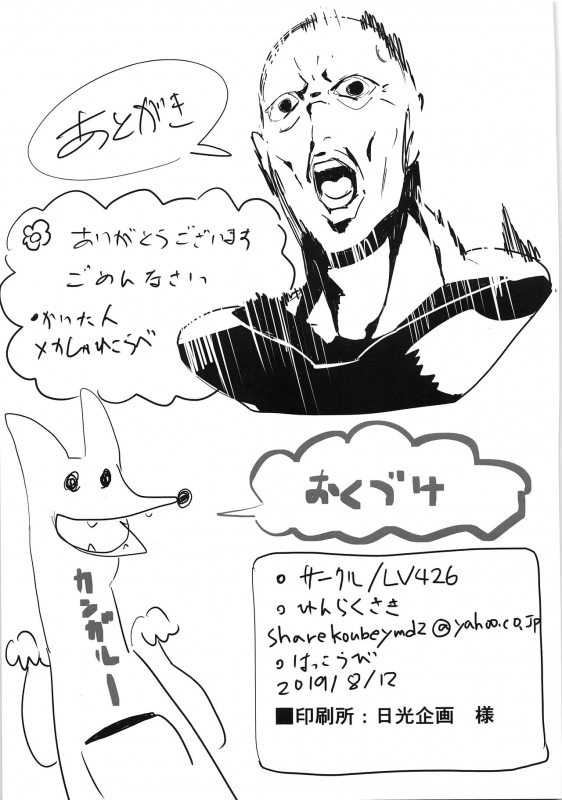 あとがき
ありがとうございます
ごめんなさい
•かいた人
メカしゃれこうべ
おくづけ
カンガルー
○ サークル/LV426
○ れんらくさき
sharekoubeymdz@yahoo.co.jp
○ はっこうび
2019/8/12
■印刷所:日光企画 様